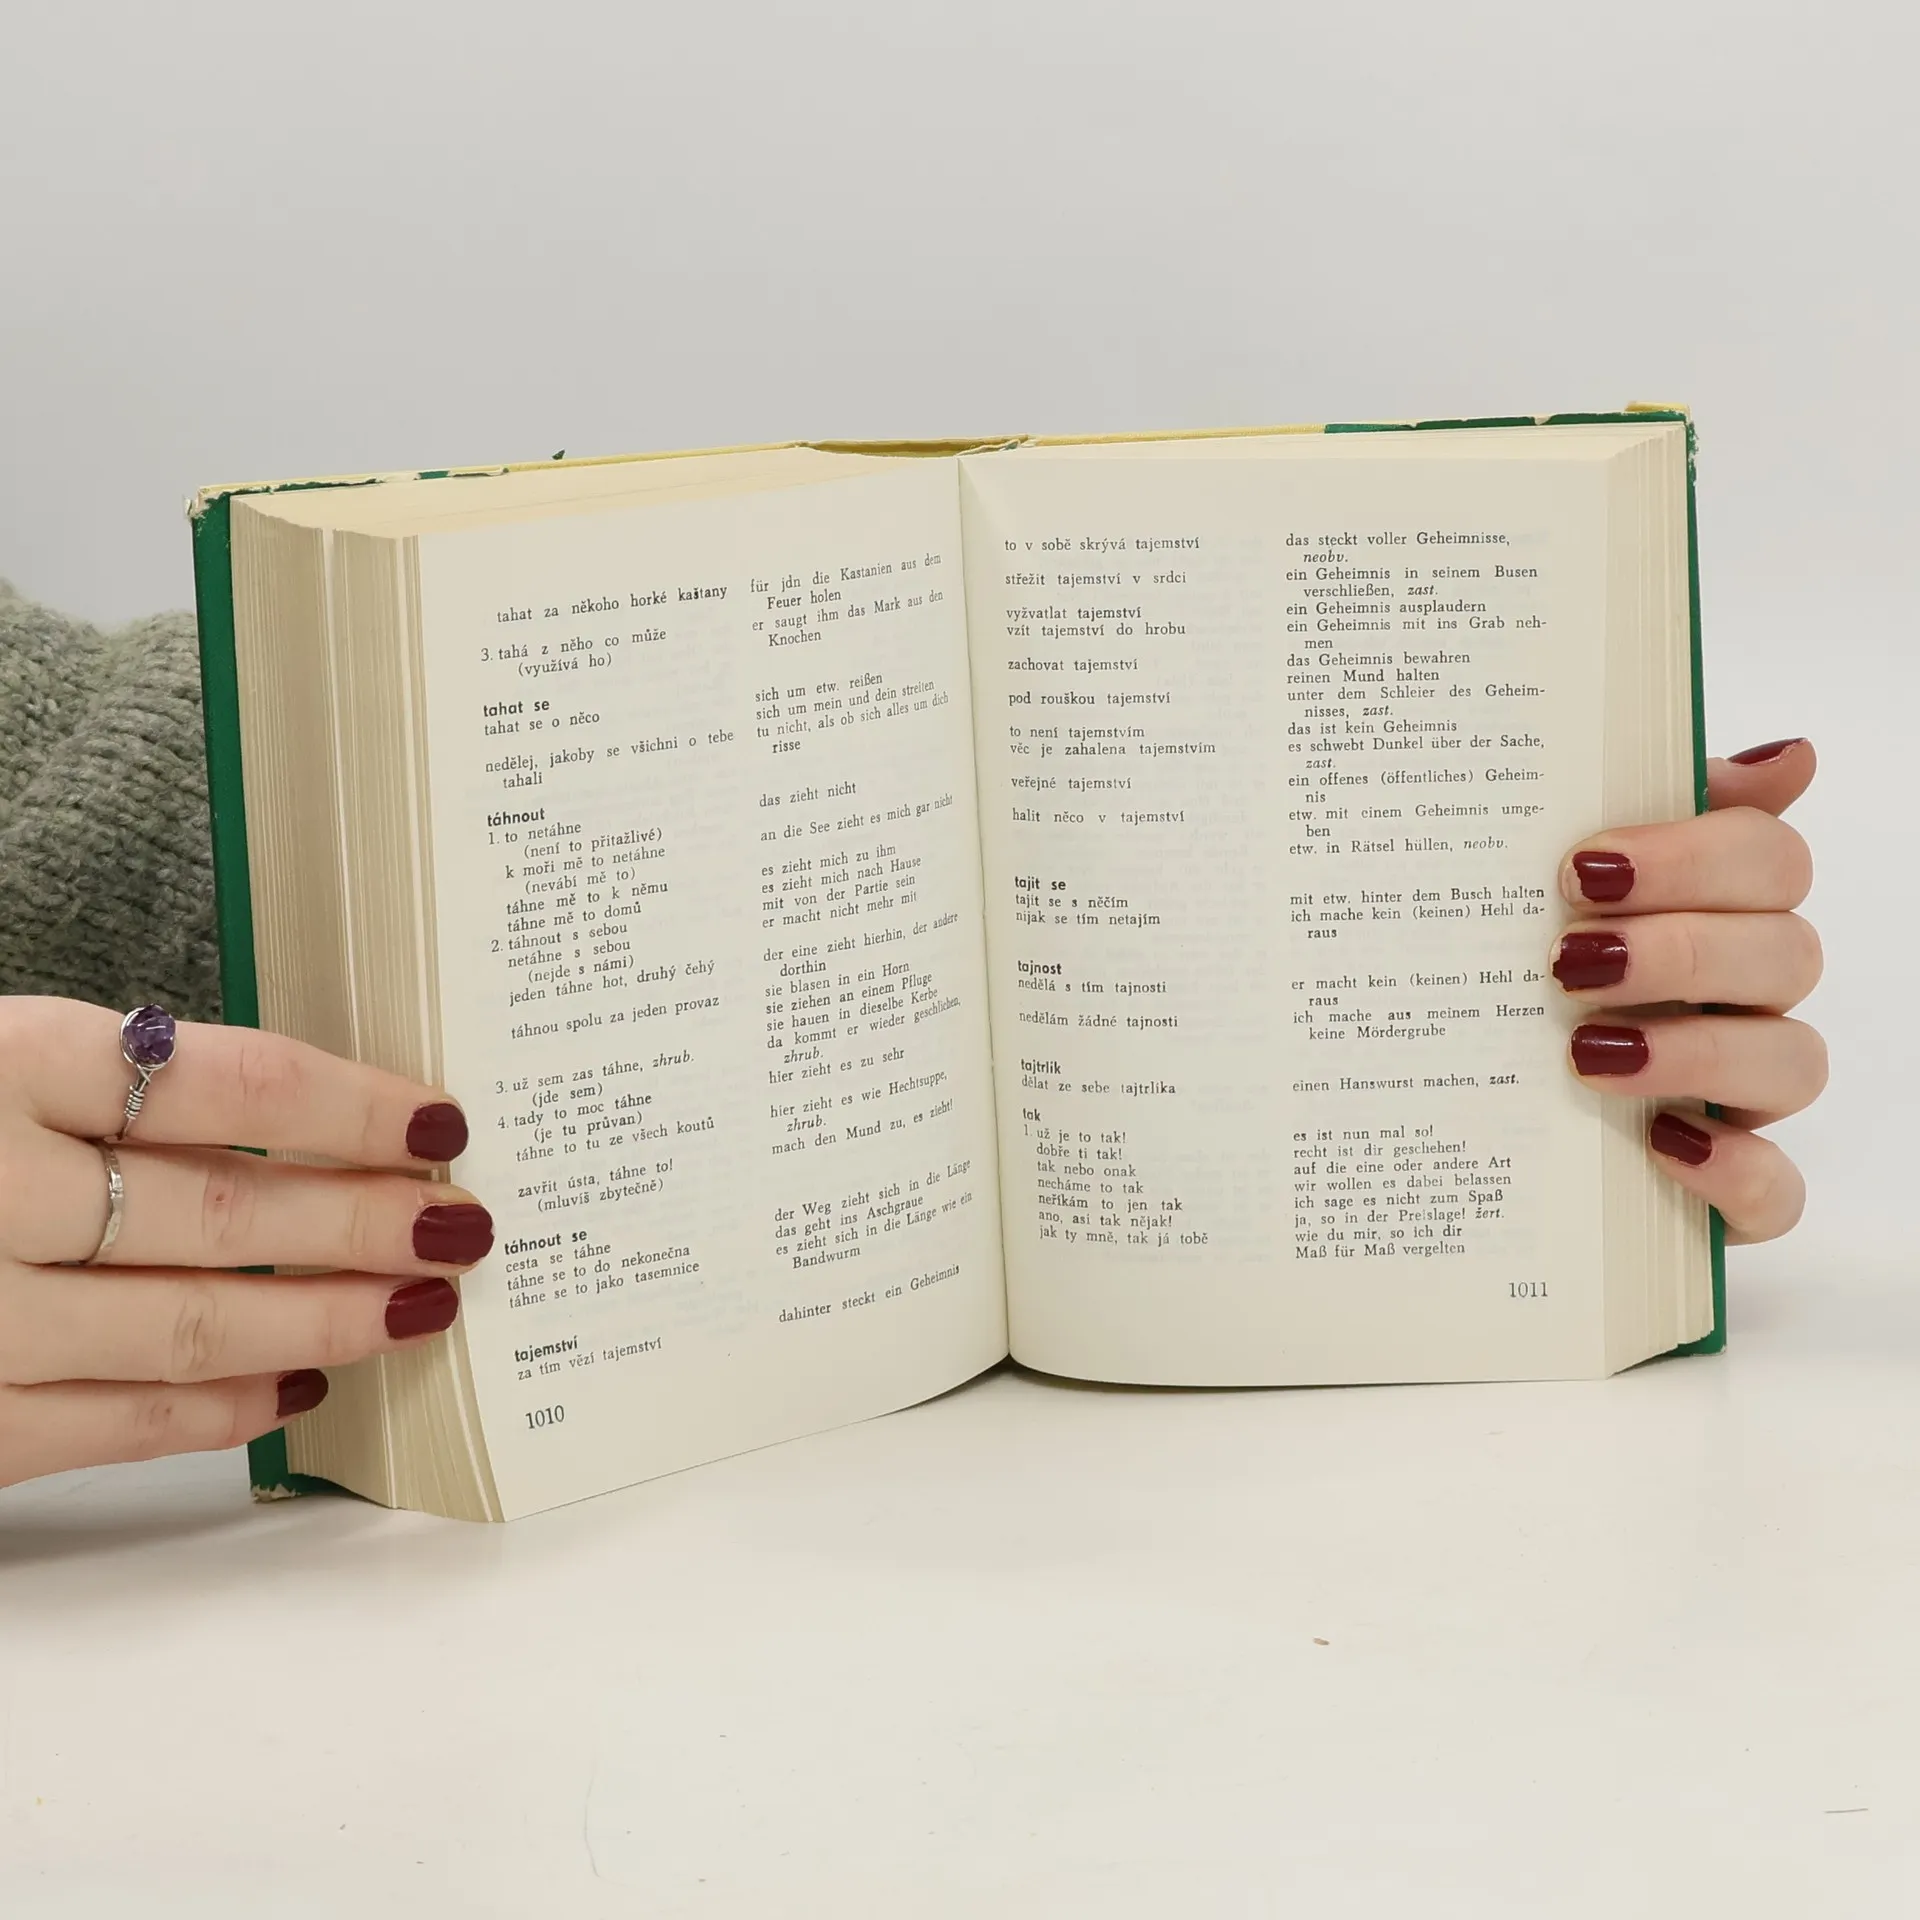 tahat za někoho horké kaštany
3. tahá z něho co může
(využívá ho)
tahat se
tahat se o něco
nedělej, jakoby se všichni o tebe
tahali
táhnout
1. to netáhne
(není to přitažlivé)
k moři mě to netáhne
(nevábí mě to)
táhne mě to k němu
táhne mě to domů
2. táhnout s sebou
netáhne s sebou
(nejde s námi)
jeden táhne hot, druhý čehý
táhnou spolu za jeden provaz
3. už sem zas táhne, zhrub.
(jde sem)
4. tady to moc táhne
(je tu průvan)
táhne to tu ze všech koutů
zavřit ústa, táhne to!
(mluvíš zbytečně)
táhnout se
cesta se táhne
táhne se to do nekonečna
táhne se to jako tasemnice
tajemství
za tím vězí tajemství
1010
für jdn die Kastanien aus dem
Feuer holen
er saugt ihm das Mark aus den
Knochen
sich um etw. reißen
sich um mein und dein streiten
tu nicht, als ob sich alles um dich
risse
das zieht nicht
an die See zieht es mich gar nicht
es zieht mich zu ihm
es zieht mich nach Hause
mit von der Partie sein
er macht nicht mehr mit
der eine zieht hierhin, der andere
dorthin
sie blasen in ein Horn
sie ziehen an einem Pfluge
sie hauen in dieselbe Kerbe
da kommt er wieder geschlichen,
zhrub.
hier zieht es zu sehr
hier zieht es wie Hechtsuppe,
zhrub.
mach den Mund zu, es zieht!
der Weg zieht sich in die Länge
das geht ins Aschgraue
es zieht sich in die Länge wie ein
Bandwurm
dahinter steckt ein Geheimnis
to v sobě skrývá tajemství
střežit tajemství v srdci
vyžvatlat tajemství
vzít tajemství do hrobu
zachovat tajemství
pod rouškou tajemství
to není tajemstvím
věc je zahalena tajemstvím
veřejné tajemství
halit něco v tajemství
tajit se
tajit se s něčím
nijak se tím netajím
tajnost
nedělá s tím tajnosti
nedělám žádné tajnosti
tajtrlik
dělat ze sebe tajtrlika
tak
1. už je to tak!
dobře ti tak!
tak nebo onak
necháme to tak
neříkám to jen tak
ano, asi tak nějak!
jak ty mně, tak já tobě
das steckt voller Geheimnisse,
neobv.
ein Geheimnis in seinem Busen
verschließen, zast.
ein Geheimnis ausplaudern
ein Geheimnis mit ins Grab neh-
men
das Geheimnis bewahren
reinen Mund halten
unter dem Schleier des Geheim-
nisses, zast.
das ist kein Geheimnis
es schwebt Dunkel über der Sache,
zast.
ein offenes (öffentliches) Geheim-
nis
etw. mit einem Geheimnis umge-
ben
etw. in Rätsel hüllen, neobv.
mit etw. hinter dem Busch halten
ich mache kein (keinen) Hehl da-
raus
er macht kein (keinen) Hehl da-
raus
ich mache aus meinem Herzen
keine Mördergrube
einen Hanswurst machen, zast.
es ist nun mal so!
recht ist dir geschehen!
auf die eine oder andere Art
wir wollen es dabei belassen
ich sage es nicht zum Spaß
ja, so in der Preislage! žert.
wie du mir, so ich dir
Maß für Maß vergelten
1011